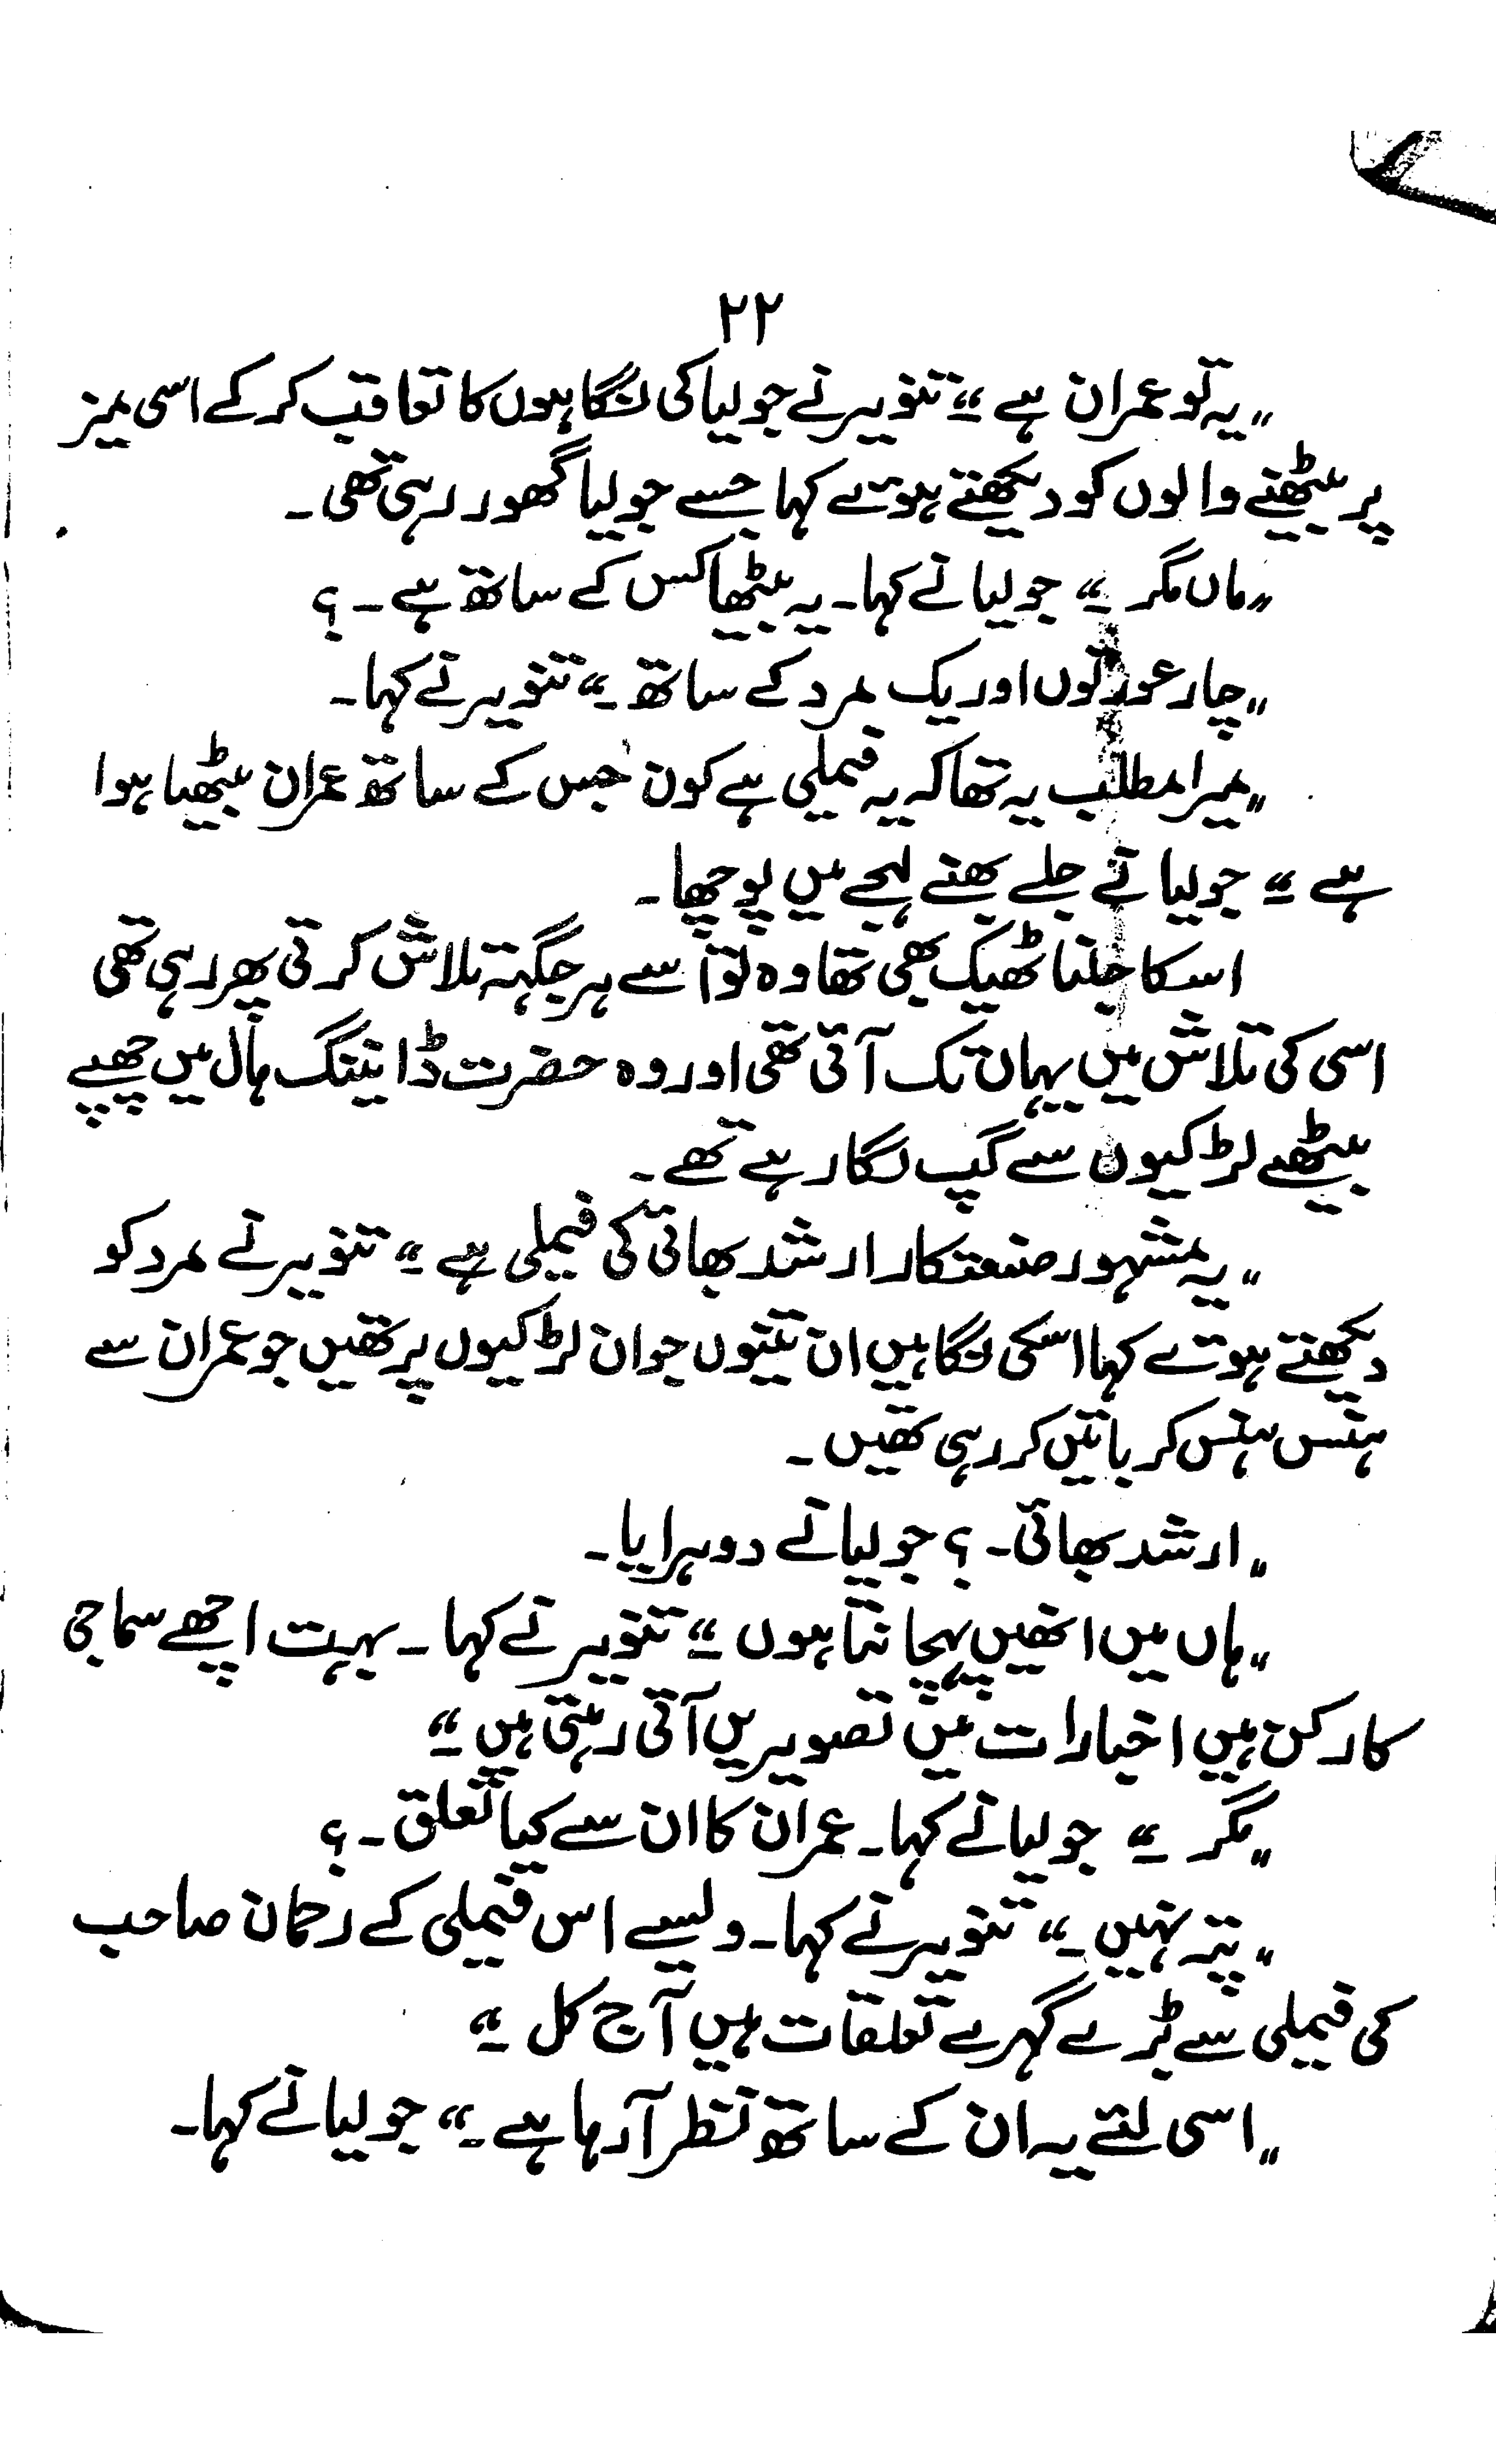 ۲۲
"یہ تو عمران ہے۔" تنویر نے جولیا کی نگاہوں کا تعاقب کر کے اسی میز
پر بیٹھنے والوں کو دیکھتے ہوئے کہا جسے جولیا گھور رہی تھی۔
"ہاں مگر۔" جولیا نے کہا۔ یہ بیٹھا کس کے ساتھ ہے۔؟
"چار عورتوں اور یک مرد کے ساتھ۔" تنویر نے کہا۔
"میرا مطلب یہ تھا کہ یہ فیملی ہے کون جس کے ساتھ عمران بیٹھیا ہوا
ہے۔" جولیا نے جلے بھنے لہجے میں پوچھا۔
اسکا جلنا ٹھیک بھی تھا وہ تو اسے ہر جگہہ تلاش کرتی پھر رہی تھی
اسی کی تلاش میں یہاں تک آئی تھی اور وہ حضرت ڈائیننگ ہال میں چھپے
بیٹھے لڑکیوں سے گپ لگا رہے تھے۔
"یہ مشہور صنعتکار ارشد بھائی کی فیملی ہے۔" تنویر نے مرد کو
دیکھتے ہوئے کہا اسکی نگاہیں ان تینوں جوان لڑکیوں پر تھیں جو عمران سے
ہنس ہنس کر باتیں کر رہی تھیں۔
"ارشد بھائی۔؟ جولیا نے دوہرایا۔
"ہاں میں انھیں پہچانتا ہوں۔" تنویر نے کہا۔ بہت اچھے سماجی
کارکن ہیں اخبارات میں تصویریں آتی رہتی ہیں۔"
"مگر۔" جولیا نے کہا۔ عمران کا ان سے کیا تعلق۔؟
"پتہ نہیں۔" تنویر نے کہا۔ ویسے اس فیملی کے رحمان صاحب
کی فیملی سے بڑے گہرے تعلقات ہیں آج کل۔"
"اسی لئے یہ ان کے ساتھ نظر آ رہا ہے۔" جولیا نے کہا۔